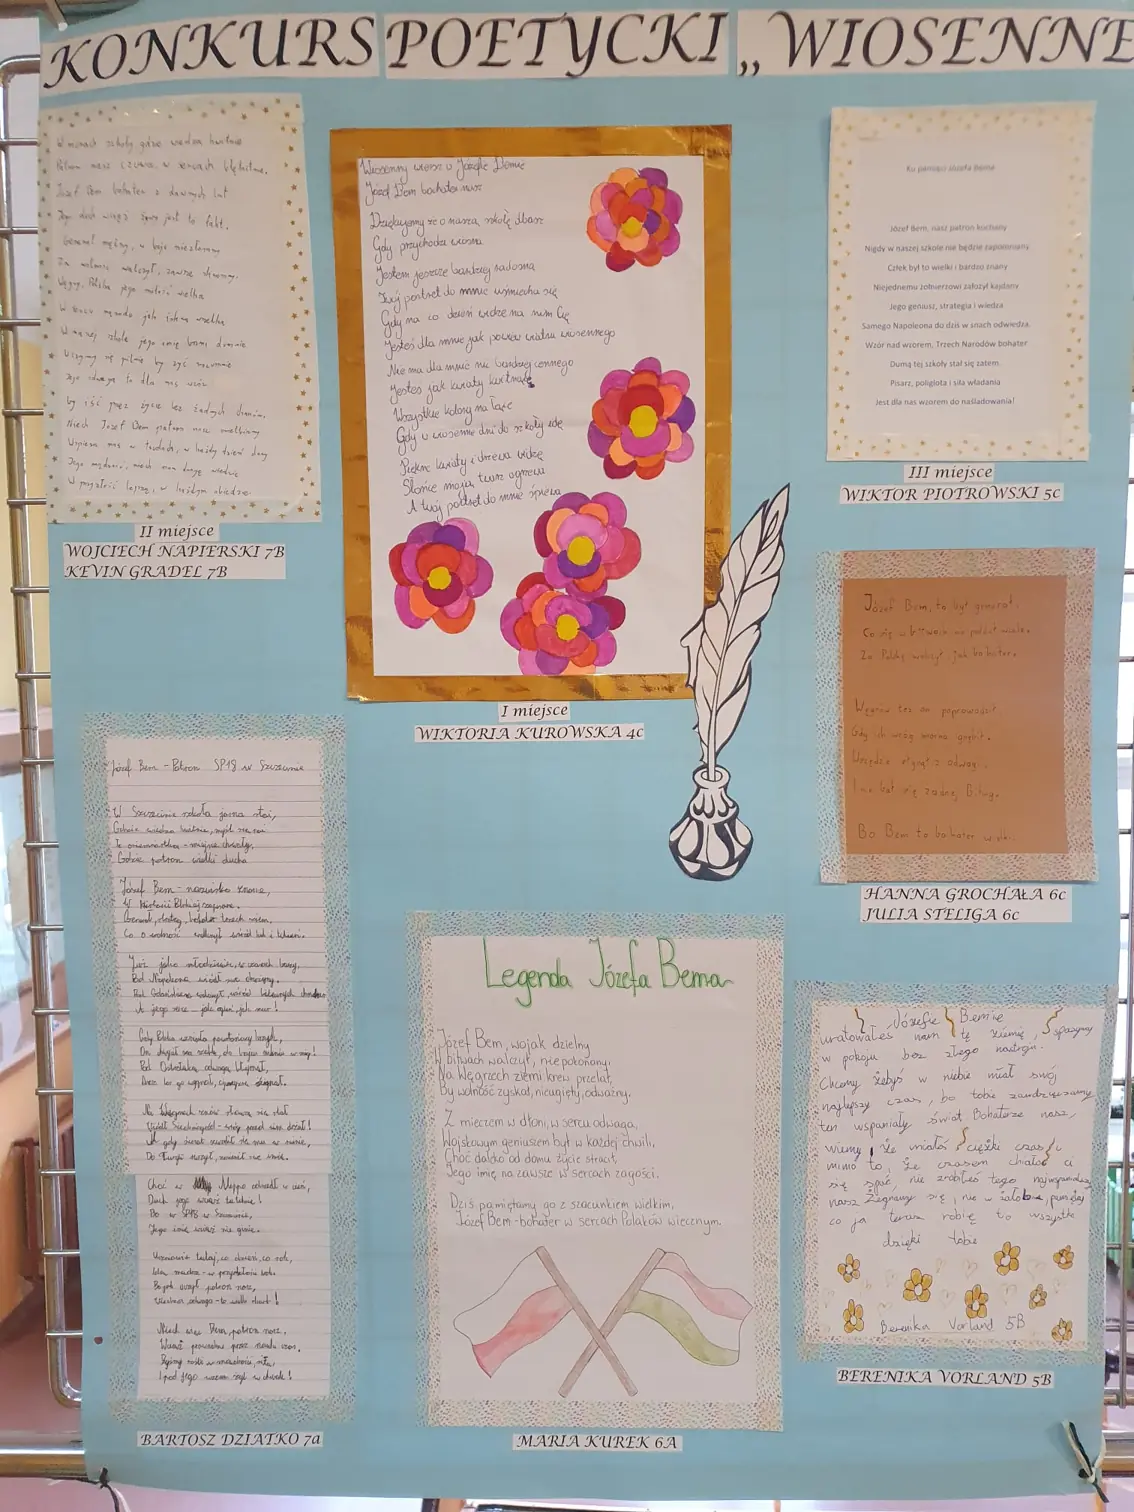 KONKURS POETYCKI „WIOSENNE
W murach szkoły gdzie wiedza kwitnie
Patron nasz czuwa, w sercach błękitnie.
Józef Bem bohater z dawnych lat
Jego duch wciąż żywy jest to fakt.
Generał mężny, w boju niezłomny
Za wolność walczył, zawsze
Węgry, Polska jego miłość wielka
W sercu
W naszej szkole jego imię brzmi dumnie
Uczymy się pilnie by żyć rozumnie
Jego odwaga to dla nas wzór
by iść przez życie bez żadnych
Niech Józef Bem patron nasz
Wspiera nas w trudach, w każdy dzień
Jego mądrość niech nam drogę wskaże
W przyszłość lepszą, w każdym
II miejsce
WOJCIECH NAPIERSKI 7B
KEVIN GRADEL 7B
Wiosenny wiersz o Józefie Bemie
Józef Bem bohater nasz
Dziękujemy że o naszą szkołę dbasz
Gdy przychodzi wiosna
Jestem jeszcze bardziej radosna
Twój portret do mnie uśmiecha się
Gdy na co dzień widzę na nim Cię
Jesteś dla mnie jak powiew wiatru wiosennego
Nie ma dla mnie nic bardziej cennego
Jesteś jak kwiaty kwitnące
Wszystkie kolory na łące
Gdy w wiosenne dni do szkoły idę
Piękne kwiaty i drzewa widzę
Słońce moją twarz ogrzewa
A twój portret do mnie śpiewa
I miejsce
WIKTORIA KUROWSKA 4c
Ku pamięci Józefa Bema
Józef Bem, nasz patron kochany
Nigdy w naszej szkole nie będzie zapomniany
Człek był to wielki i bardzo znany
Niejednemu żołnierzowi założył kajdany
Jego geniusz, strategia i wiedza
Samego Napoleona do dziś w snach odwiedza.
Wzór nad wzorem, Trzech Narodów bohater
Dumą tej szkoły stał się zatem.
Pisarz, poliglota i siła władania
Jest dla nas wzorem do naśladowania!
III miejsce
WIKTOR PIOTROWSKI 5c
Józef Bem, to był generał.
Co się w bitwach nie poddał wcale.
Za Polskę walczył jak bohater.
Węgrów też on poprowadził
Gdy ich wróg
Wszędzie słynął z odwagi.
I nie bał się żadnej bitwy.
Bo Bem to bohater
HANNA GROCHAŁA 6c
JULIA STELIGA 6c
Józef Bem - Patron SP18 w Szczecinie
W Szczecinie szkoła jasna stoi,
Gdzie wiedza kwitnie, myśl się roi
To osiemnastka - miejsce chwały,
Gdzie patron wielki ducha
Józef Bem - nazwisko znane,
W historii Polski zapisane.
Generał, strateg, bohater trzech ziem,
Co o wolność walczył wśród łez i
Już jako młodzieniec, w czasach burzy,
Pod Napoleona
Pod Gdańskiem walczył, wśród
A jego serce - jak ogień, jak mur!
Gdy Polska wzniosła powstańczy krzyk,
On
Pod Ostrołęką odwagą błysnął,
Na Węgrzech znów sława się stał
A gdy świat
Do Turcji ruszył,
Choć w Aleppo odszedł w cień,
Duch jego wciąż
Bo w SP18 w Szczecinie,
Jego imię wciąż nie ginie.
Uczniowie tutaj, co dzień, co rok,
Bo jak uczył patron nasz,
Wiedza odwaga - to wielki skarb!
Niech więc Bem, patron nasz,
Wciąż prowadzi przez nauki czas.
I pod Jego wzorem żyli w chwale!
BARTOSZ DZIATKO 7a
Legenda Józefa Bema
Józef Bem, wojak dzielny
W bitwach walczył, niepokonany.
Na Węgrzech ziemi krew przelał,
By wolność zyskał, nieugięty, odważny.
Z mieczem w dłoni, w sercu odwaga,
Wojskowym geniuszem był w każdej chwili,
Choć daleko od domu życie stracił,
Jego imię na zawsze w sercach zagości.
Dziś pamiętamy go z szacunkiem wielkim,
Józef Bem - bohater w sercach Polaków wiecznym.
MARIA KUREK 6A
Józefie Bemie
uratowałeś nam tę ziemię, spaszyny
w pokoju bez złego nastroju.
Chcemy żebyś w niebie miał swój
najlepszy czas, bo tobie zawdzięczamy
ten wspaniały świat Bohaterze nasz,
wiemy, że miałeś ciężki czas
mimo to, że czasem chciało ci
się spać, nie zrobiłeś tego najwspanialszy
nasz Żegnamy się, nie w żałobie, pamiętaj
co ja teraz robię to wszystko
dzięki tobie
Berenika Vorland 5B
BERENIKA VORLAND 5B